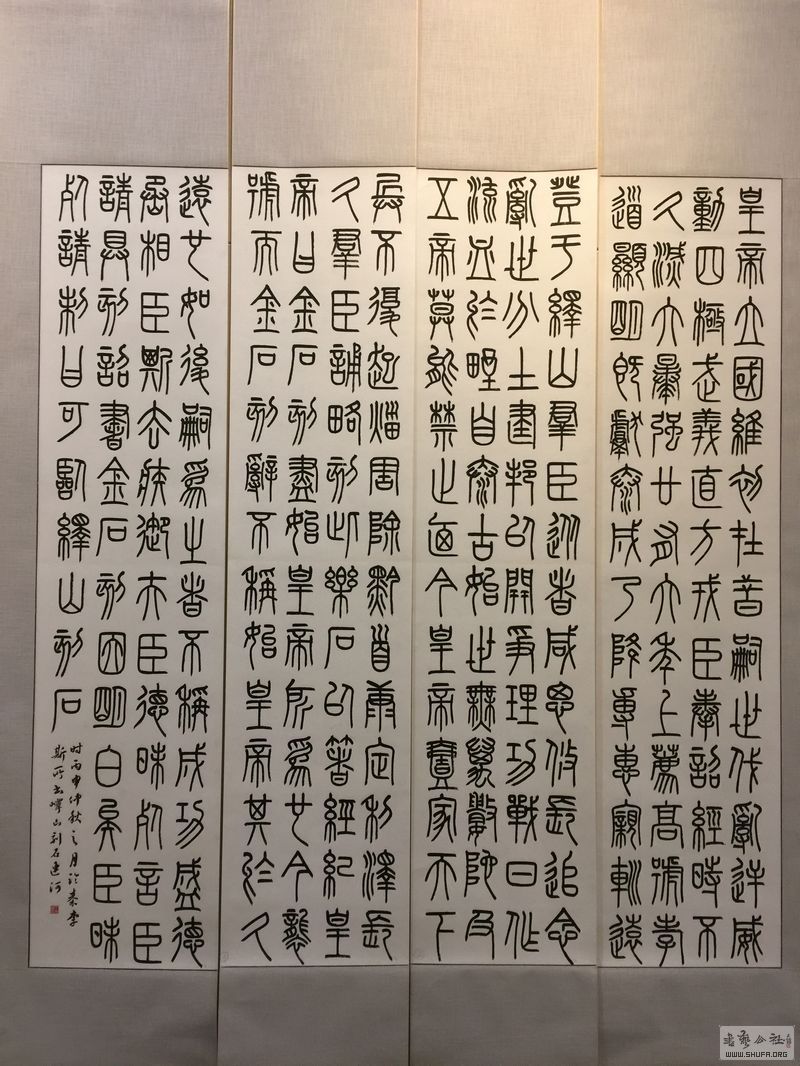 皇帝立國維初在昔嗣世伐亂逆威
動四極武義直方戎臣奉詔經時不
久滅六暴强廿有六年上薦高號孝
道顯明既獻泰成乃降專惠親巡遠
登于繹山羣臣從者咸思攸長追念
亂世分土建邦以開爭理功戰日作
流血於野自泰古始世無萬數陀及
五帝莫能禁止廼今皇帝壹家天下
兵不復起災害除黔首康定利澤長
久羣臣誦略刻此樂石以著經紀皇
帝曰金石刻盡始皇帝所為也今襲
號而金石刻辭不稱始皇帝其於久
遠也如後嗣為之者不稱成功盛德
丞相臣斯去疾御夫臣德昧死言臣
請具刻詔書金石刻因明白矣臣昧
死請制曰可臨繹山刻石
时丙申仲秋之月临秦李
斯所书嶧山刻石
書藝公社
WWW.SHUFA.ORG